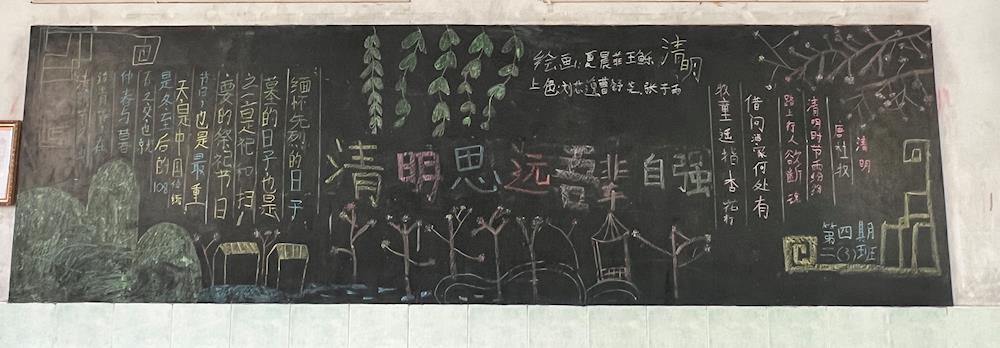 清明
绘画:夏晨
上色:
清明思远吾辈自强
清明
唐 杜牧
清明时节雨纷纷
路上行人欲断魂
借问酒家何处有
牧童遥指杏花村
仲春与暮春
之交也就
是冬至后的108
天是中国传统
节日,也是最重
要的祭祀节日
之一是祀和扫
墓的日子也是
缅怀先烈的日子
第四期
二(3)班